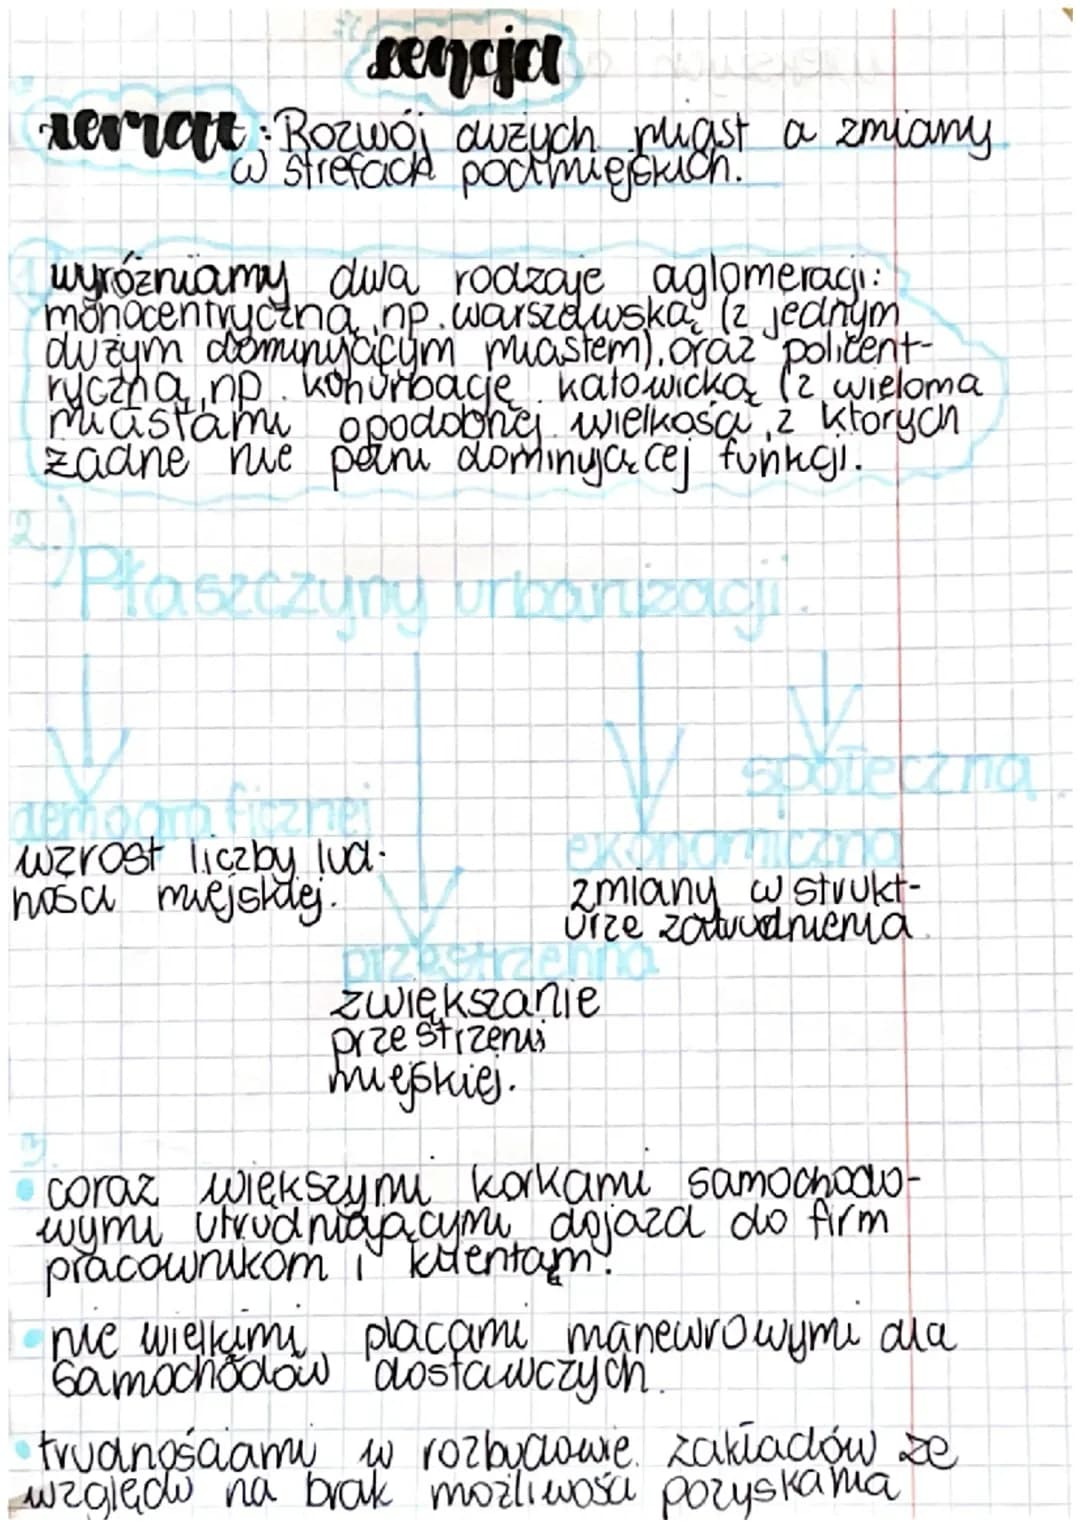 Lekcja
Temat: Rozwój dużych miast a zmiany
w strefach podmiejskich.
1.
wyróżniamy dwa rodzaje aglomeracji:
monocentryczną, np. warszawską (z jednym
dużym dominującym miastem), oraz policent-
ryczną, np. konurbację katowicką (z wieloma
miastami opodobnej wielkości, z których
żadne nie pełni dominującej funkcji.
2.) Płaszczyzny urbanizacji.
społeczna
demograficznej
wzrost liczby lud-
ności miejskiej.
ekonomiczna
zmiany w strukt-
urze zatrudnienia.
przestrzenna
zwiększanie
przestrzeni
miejskiej.
3.
• coraz większymi korkami samochodo-
wymi utrudniającymi dojazd do firm
pracownikom i klientom.
• nie wielkimi placami manewrowymi dla
samochodów dostawczych.
• trudnościami w rozbudowie zakładów ze
względu na brak możliwości pozyskania